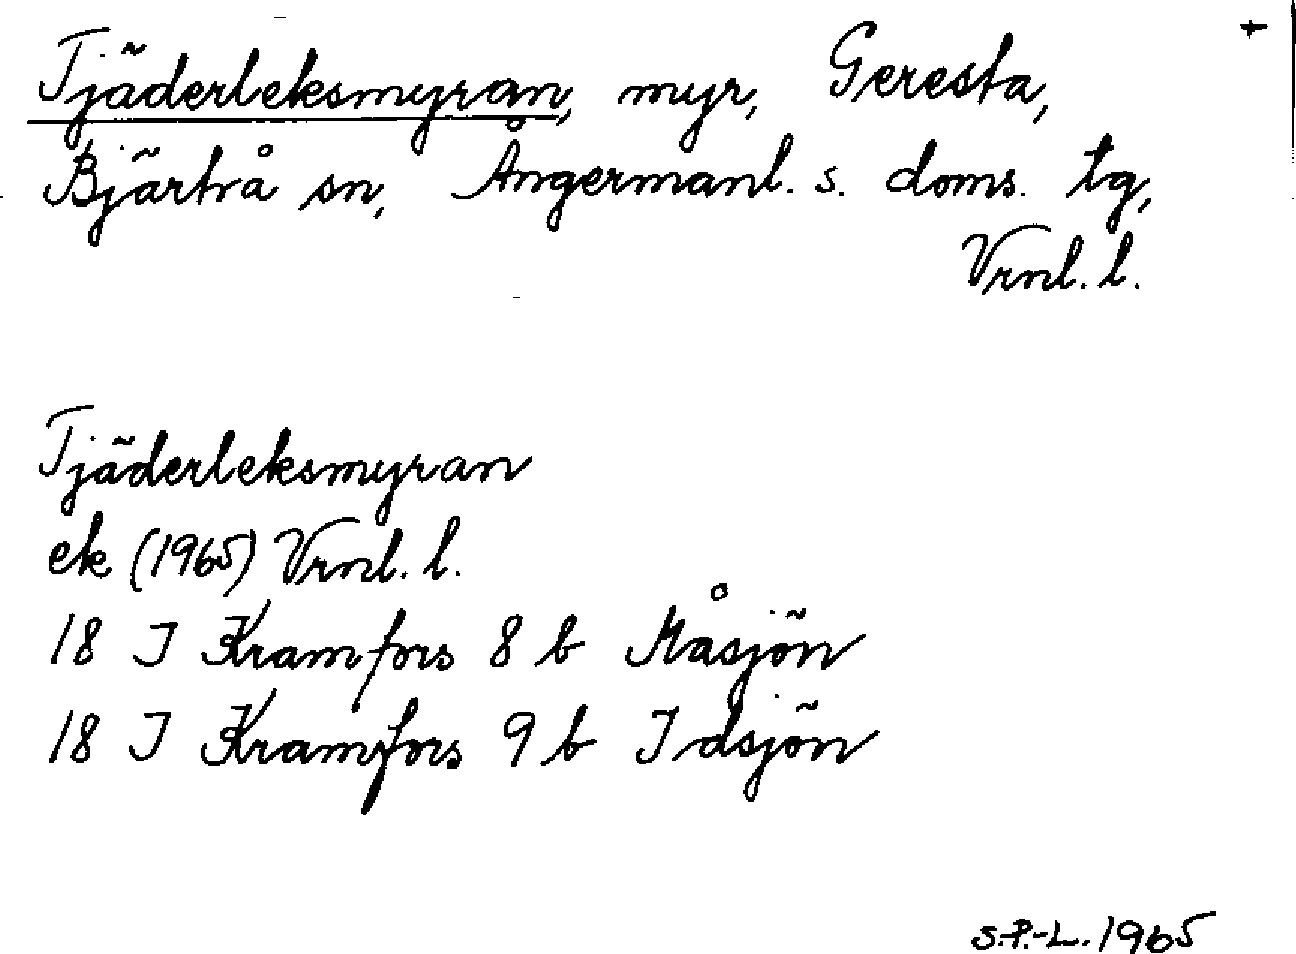 +
Tjäderleksmyran, myr, Geresta,
Bjärtrå sn, Ångermanl. s. doms. tg,
Vrnl. l.
Tjäderleksmyran
ek (1965) Vrnl. l.
18 I Kramfors 8 b Måsjön
18 I Kramfors 9 b Idsjön
S.P.-L. 1965